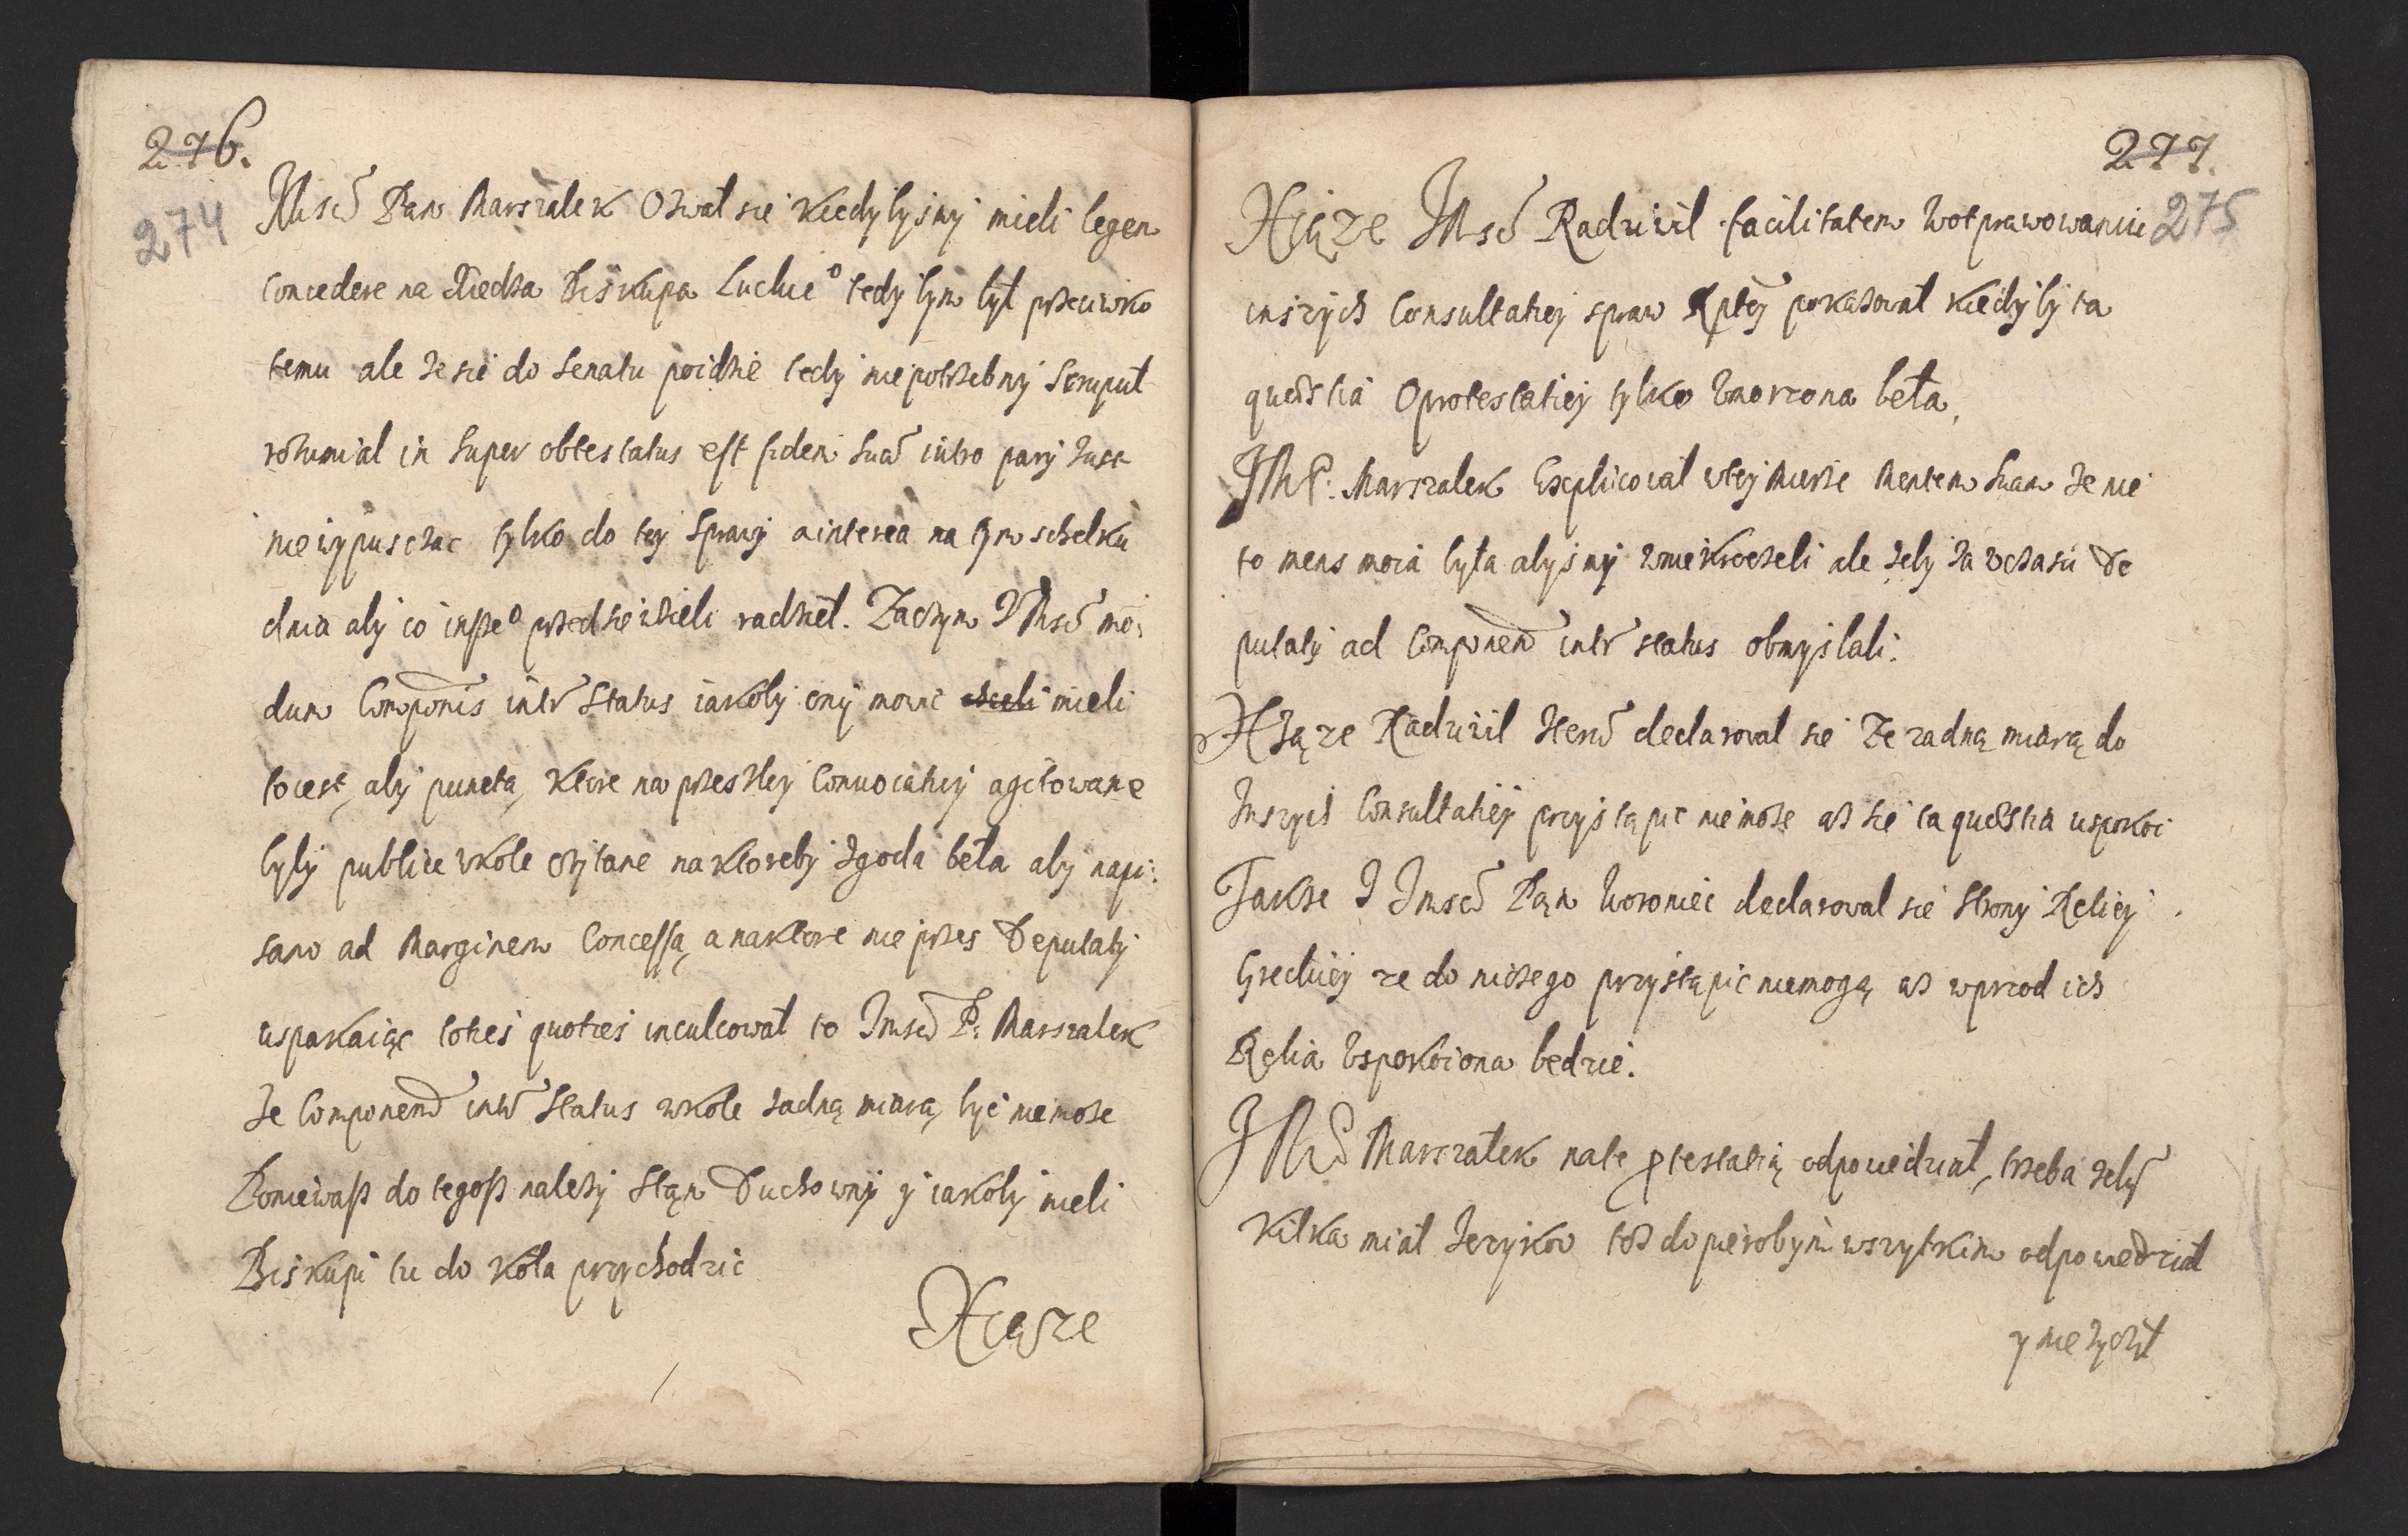 276.
274
JMsć Pan Marszalek Ozwał sie kiedybysmy mieli legem
concedere na Xiedza Biskupa Luckie° tedybym był przeciwko
temu ale ze sie do Senatu poidzie tedy niepotrzebny Scruput
rozumial in super obtestatus est fidem suã intro pary zust
niewypusczac tylko do tey Sprawy a interea na tym schelku
dnia aby co insze° przedsiewzieli radzieł. Zaczym JMsć mo:
dum Componis intr Status iakoby ony mowic chcieli mieli
to iest, aby puncta, ktore na przeszley Convocatiey agitowane
byly publice w kole czytane na ktoreby zgoda beła aby napi:
sano ad Marginem Concessą, a na ktore nie przes Deputaty
uspakaiąc toties quoties inculcował to Jmsć P. Marszalek
ze Componend intr Status w kole zadną miarą, byc niemoze
Poniewasz do tegosz nalezy Stąn Duchowny y iakoby mieli
Biskupi tu do koła przychodzic
Xiąze
277.
275
Xiąze JMsć Radziwil facilitatem w otprawowaniu
inszych Consultatiey spraw Rptey pokazował kiedyby ta
quæstia o protestatiey tylko vmorzona beła,
JMP. Marszalek Explicował w tey mierze Mentem suam ze nie
to mens moia byla abysmy w nie kroczeli ale zeby za wczasu De
putaty ad Componend intr status obmyslali.
Xsząze Radziwil Iterũ declarowal sie ze zadną miarą do
Inszych Consultatiey przystąpic niemoze az sie ta quæstia uspokoi
Takze J Jmsć Pan Woroniec declarowal sie Strony Religiey
Greckiey ze do niczego przystąpic niemogą az wprzod ich
Relia Vspokoiona bedzie.
JMsć Marszałek na te ptestatią odpowiedział, trzeba zeby
kilka miał Jezykow toz dopierobym wszytkim odpowiedział
y nie zyczył